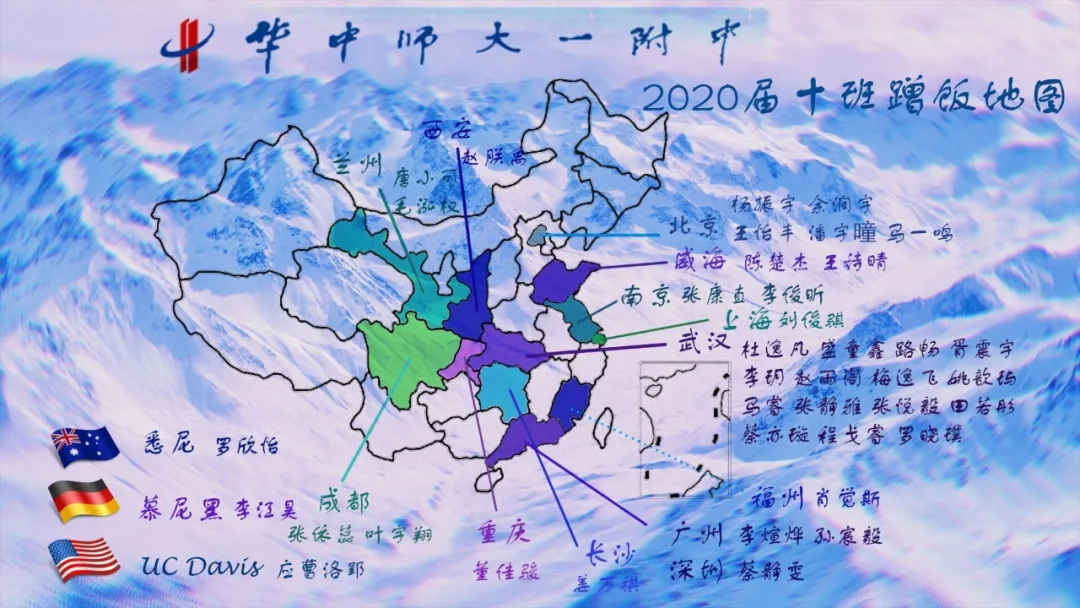 华中师大一附中
2020届十班蹭饭地图
西安
赵朕
兰州
唐小可
毛泓权
杨振宇 余润宇
北京 王怡丰 潘宇曈 马一鸣
威海 陈楚杰 王诗晴
南京 张康直 李俊昕
上海 刘俊骐
武汉 杜逸凡 盛童鑫 路畅 胥震宇
李玥 赵雨阁 梅逸飞 姚歆
马睿 张静雅 张悦毅 田若彤
蔡亦璇 程戈睿 罗晓璞
悉尼 罗欣怡
慕尼黑 李江昊
成都
张依蕊 叶宇翔
UC Davis 应曹洛郢
重庆
董佳骏
长沙
姜万祺
福州 肖觉斯
广州 李煊烨 孙宸毅
深圳 蔡静雯